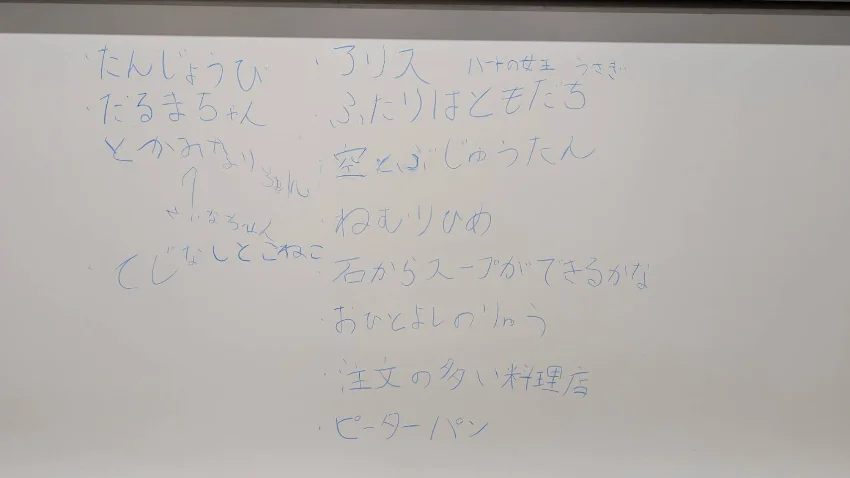 ・たんじょうび
・だるまちゃん
とかみなりちゃん
↑
せいなちゃん
・てじなしとこねこ
・アリス ハートの女王 うさぎ
・ふたりはともだち
・空とぶじゅうたん
・ねむりひめ
・石からスープができるかな
・おひとよしのりゅう
・注文の多い料理店
・ピーターパン